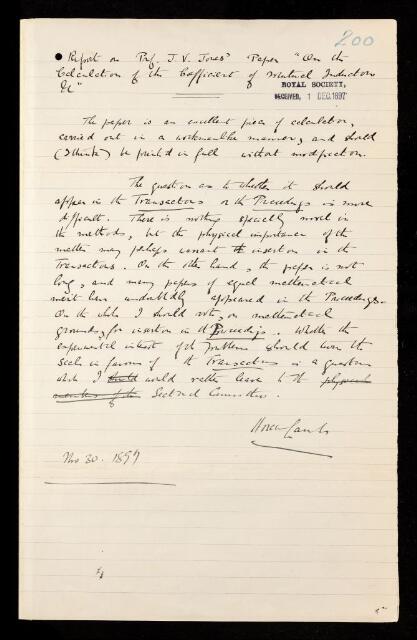 200
Report on Prof. J. V. Jones' Paper "On the
Calculation of the Coefficient of Mutual Induction
&c"
ROYAL SOCIETY,
RECEIVED, 1 DEC. 1897
The paper is an excellent piece of calculation,
carried out in a workmanlike manner, and should
(I think) be printed in full without modification.
The question as to whether it should
appear in the Transactions or the Proceedings is more
difficult. There is nothing specially novel in
the methods, but the physical importance of the
matter may perhaps warrant its insertion in the
Transactions. On the other hand, the paper is not
long, and many papers of equal mathematical
merit have undoubtedly appeared in the Proceedings.
On the whole I should vote, on mathematical
grounds, for insertion in the Proceedings. Whether the
experimental interest of the problem should turn the
scale in favour of the Transactions is a question
which I should would rather leave to the physical
members of the Sectional Committee.
Horace Lamb
Nov 30. 1897